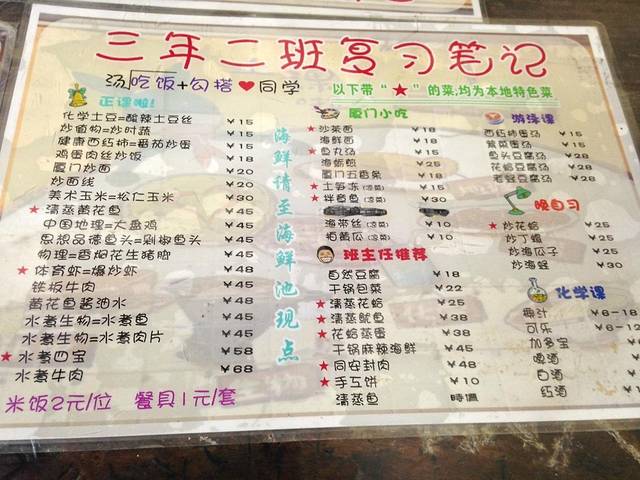 三年二班复习笔记
汤吃饭+勾搭❤同学
以下带“★”的菜，均为本地特色菜
正课啦!
化学土豆=酸辣土豆丝 ¥15
炒植物=炒时蔬 ¥15
健康西红柿=番茄炒蛋 ¥15
鸡蛋肉丝炒饭 ¥18
厦门炒面 ¥20
炒面线 ¥20
美术玉米=松仁玉米 ¥30
★清蒸黄花鱼 ¥45
中国地理=大盘鸡 ¥45
思想品德鱼头=剁椒鱼头 ¥45
物理=香焗花生猪脚 ¥45
★体育虾=爆炒虾 ¥48
铁板牛肉 ¥45
黄花鱼酱油水 ¥48
水煮生物=水煮鱼 ¥45
水煮生物=水煮肉片 ¥45
★水煮四宝 ¥58
水煮牛肉 ¥68
米饭2元/位 餐具1元/套
海鲜请至海鲜池现点
厦门小吃
★沙茶面 ¥18
海鲜面 ¥18
★鱼丸汤 ¥15
海蛎煎 ¥25
厦门五香条 ¥18
★土笋冻(凉菜) ¥15
★拌章鱼(凉菜) ¥30
海带丝(凉菜) ¥10
拍黄瓜(凉菜) ¥10
班主任推荐
自然豆腐 ¥18
干锅包菜 ¥22
★清蒸花蛤 ¥25
★清蒸鱿鱼 ¥38
★花蛤蒸蛋 ¥38
干锅麻辣海鲜 ¥45
★同安封肉 ¥48
★手工饼 ¥10
清蒸鱼 時價
游泳课
西红柿蛋汤 ¥15
紫菜蛋汤 ¥15
鱼头豆腐汤 ¥28
花蛤豆腐汤 ¥28
老蛏豆腐汤 ¥28
晚自习
★炒花蛤 ¥25
炒丁螺 ¥25
炒海瓜子 ¥25
炒海蛏 ¥30
化学课
椰汁 ¥6-18
可乐 ¥6-12
加多宝
啤酒
白酒
红酒